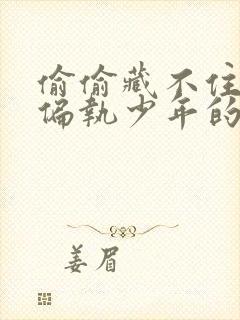 偷偷藏不住
偏執少年的
姜眉